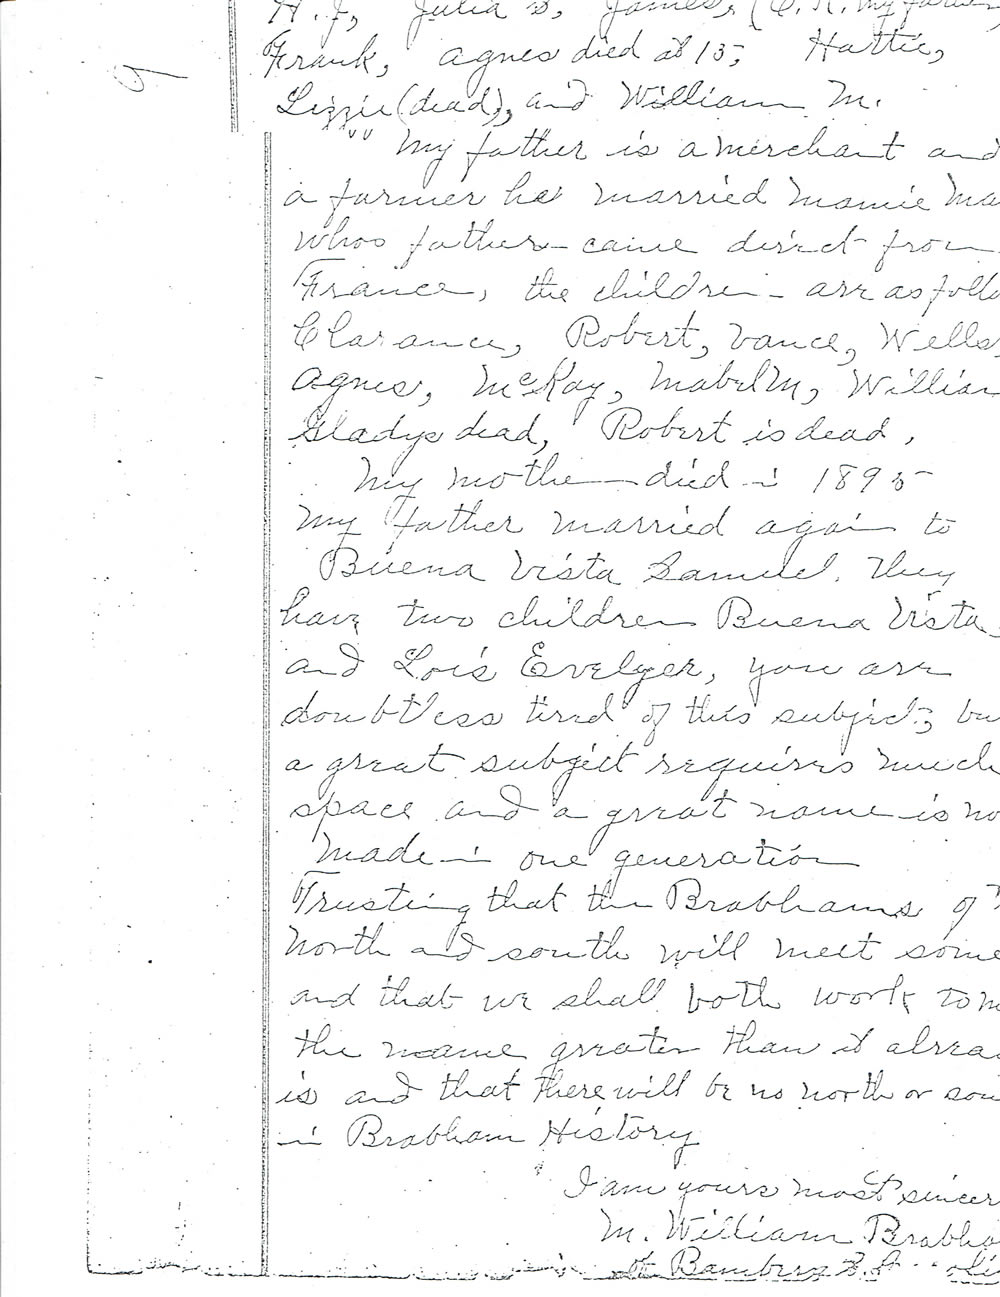 H. J, Julia S, James, (C. R. my father
Frank, Agnes died at 15, Hattie,
9
Lizzie (dead), and William M.
"" My father is a merchant and
a farmer he married Mamie Ma
whos father came direct from
France, the children are as follo
Clarance, Robert, Vance, Wells
Agnes, McKay, Mabel M, William
Gladys dead, Robert is dead,
My mother died in 1895
My father married again to
Buena Vista Samuel. They
have two children Buena Vista
and Lois Evelyer, you are
doubtless tired of this subject, bu
a great subject requires much
space and a great name is no
made in one generation
Trusting that the Brabhams of
North and south will meet some
and that we shall both work to m
the name greater than it alrea
is and that there will be no north or sou
in Brabham History
I am yours most sincer
M. William Brabha
Bamberg